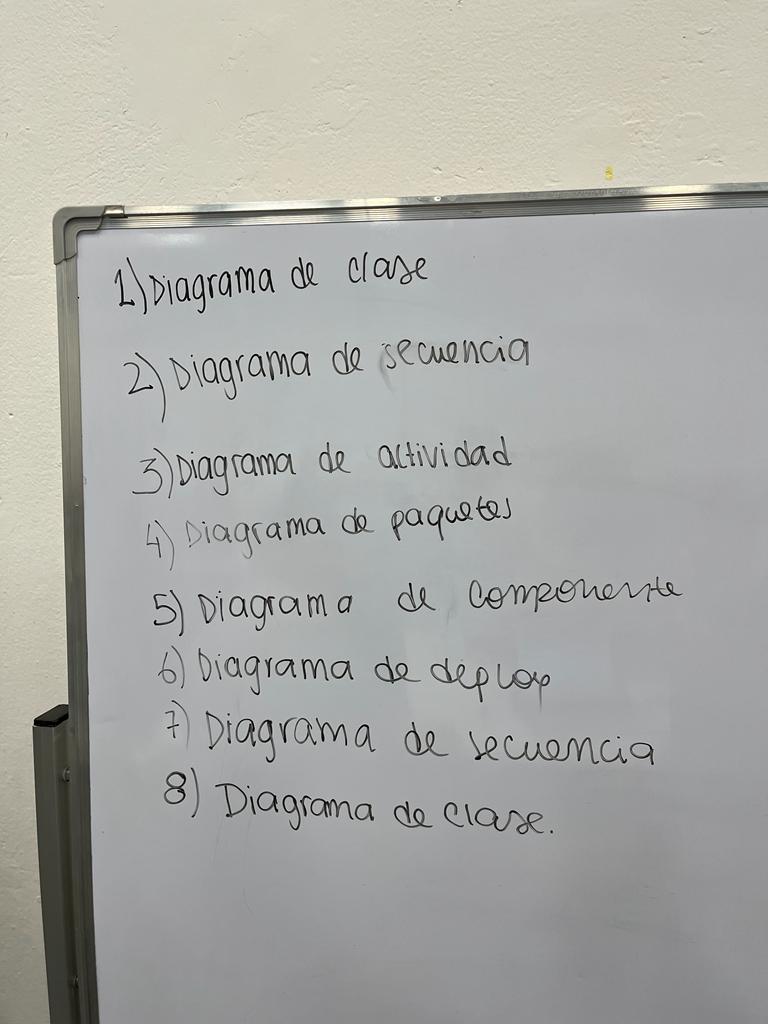 1) Diagrama de clase
2) Diagrama de secuencia
3) Diagrama de actividad
4) Diagrama de paquetes
5) Diagrama de componente
6) Diagrama de deploy
7) Diagrama de secuencia
8) Diagrama de clase.